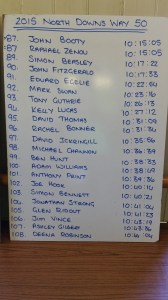 2015 NORTH DOWNS WAY 50
87. JOHN BOOTY 10:15:05
87 RAPHAEL ZENOU 10:15:05
89. SIMON BEASLEY 10:17:22
90 JOHN FITZGERALD 10:17:33
91 EDUARD 10:22:54
92 MARK SWAN 10:23
93 TONY GUTHRIE
94 KELLY LUCAS 10:27:12
95 DAVID THOMAS 10:31
96 RACHEL BONNER 10:31
97. DAVID ICKERINGILL 10:35
98 MICHAEL CHANNON 10:36
99 BEN HUNT 10:36
100 ADAM WILLIAMS 10:38
101 ANTHONY PRINT 10:39
102 JOE HOOK 10:40
103 SIMON BENNETT 10:40
104 JONATHAN STRONG 10:41
105 GLEN 10:41:23
106 JIM VINCE 10:43
107. ASHLEY GILBERT 10:43:36
108 DEEMA ROBINSON 10:46:04